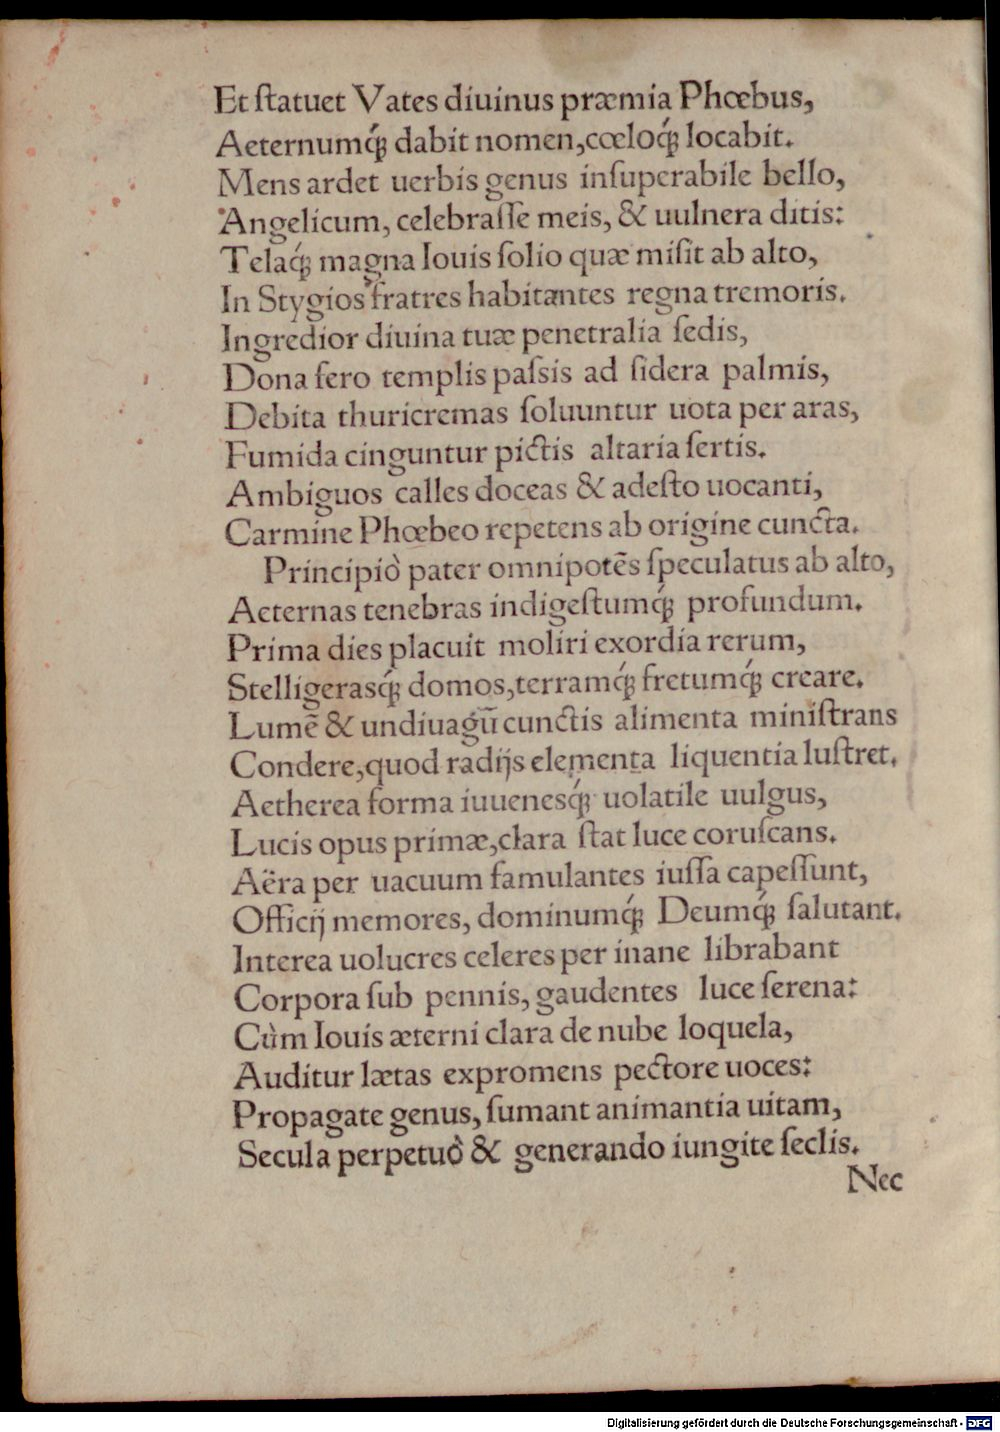 Et ſtatuet Vates diuinus præmia Phœbus,
Aeternumq́ꝫ dabit nomen,cœloq́ꝫ locabit.
Mens ardet uerbis genus inſuperabile bello,
Angelicum, celebraſſe meis, & uulnera ditis:
Telaq́ꝫ magna Iouis ſolio quæ miſit ab alto,
In Stygios fratres habitantes regna tremoris.
Ingredior diuina tuæ penetralia ſedis,
Dona fero templis paſsis ad ſidera palmis,
Debita thuricremas ſoluuntur uota per aras,
Fumida cinguntur pictis altaria ſertis.
Ambiguos calles doceas & adeſto uocanti,
Carmine Phœbeo repetens ab origine cuncta.
Principiò pater omnipotēs ſpeculatus ab alto,
Aeternas tenebras indigeſtumq́ꝫ profundum.
Prima dies placuit moliri exordia rerum,
Stelligerasq́ꝫ domos,terramq́ꝫ fretumq́ꝫ creare.
Lumē & undiuagū cunctis alimenta miniſtrans
Condere,quod radijs elementa liquentia luſtret.
Aetherea forma iuuenesq́ꝫ uolatile uulgus,
Lucis opus primæ,clara ſtat luce coruſcans.
Aëra per uacuum famulantes iuſſa capeſſunt,
Officij memores, dominumq́ꝫ Deumq́ꝫ ſalutant.
Interea uolucres celeres per inane librabant
Corpora ſub pennis, gaudentes luce ſerena:
Cùm Iouis æterni clara de nube loquela,
Auditur lætas expromens pectore uoces:
Propagate genus, ſumant animantia uitam,
Secula perpetuò & generando iungite ſeclis.
Nec
Digitalisierung gefördert durch die Deutsche Forschungsgemeinschaft - DFG